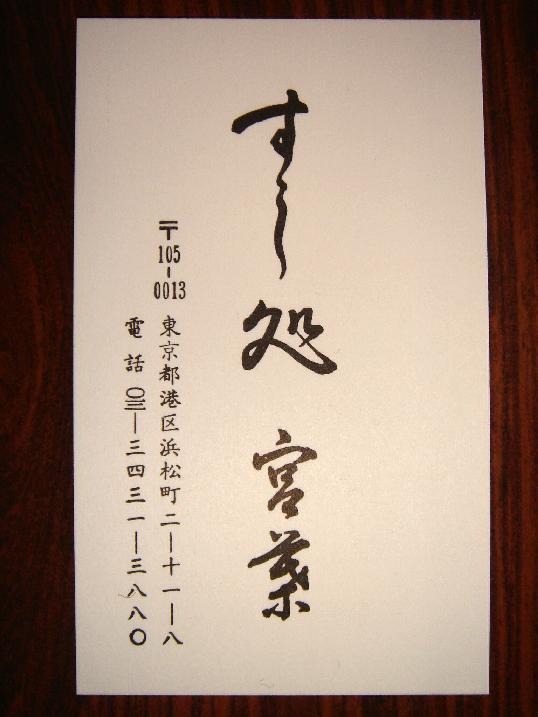 すし処 宮葉
〒105-0013
東京都港区浜松町二―十一―八
電話〇三―三四三一―三八八〇